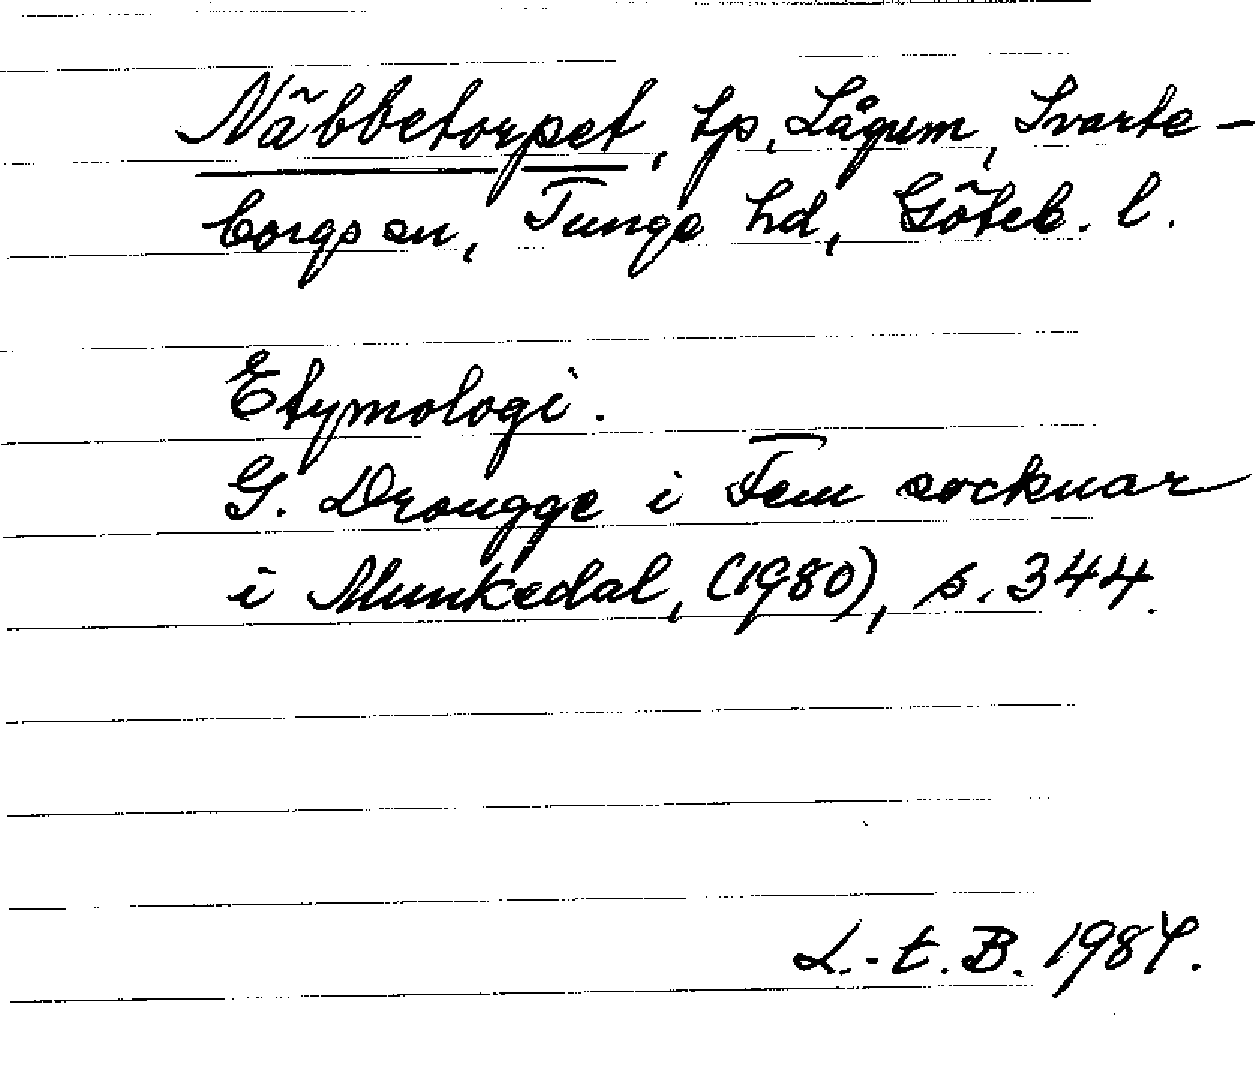 Näbbetorpet, tp, Lågum, Svarte-
borgs sn, Tunge hd, Göteb. l.
Etymologi.
G. Drougge i Fem socknar
i Munkedal, (1980), s. 344.
L.-t. B. 1984.